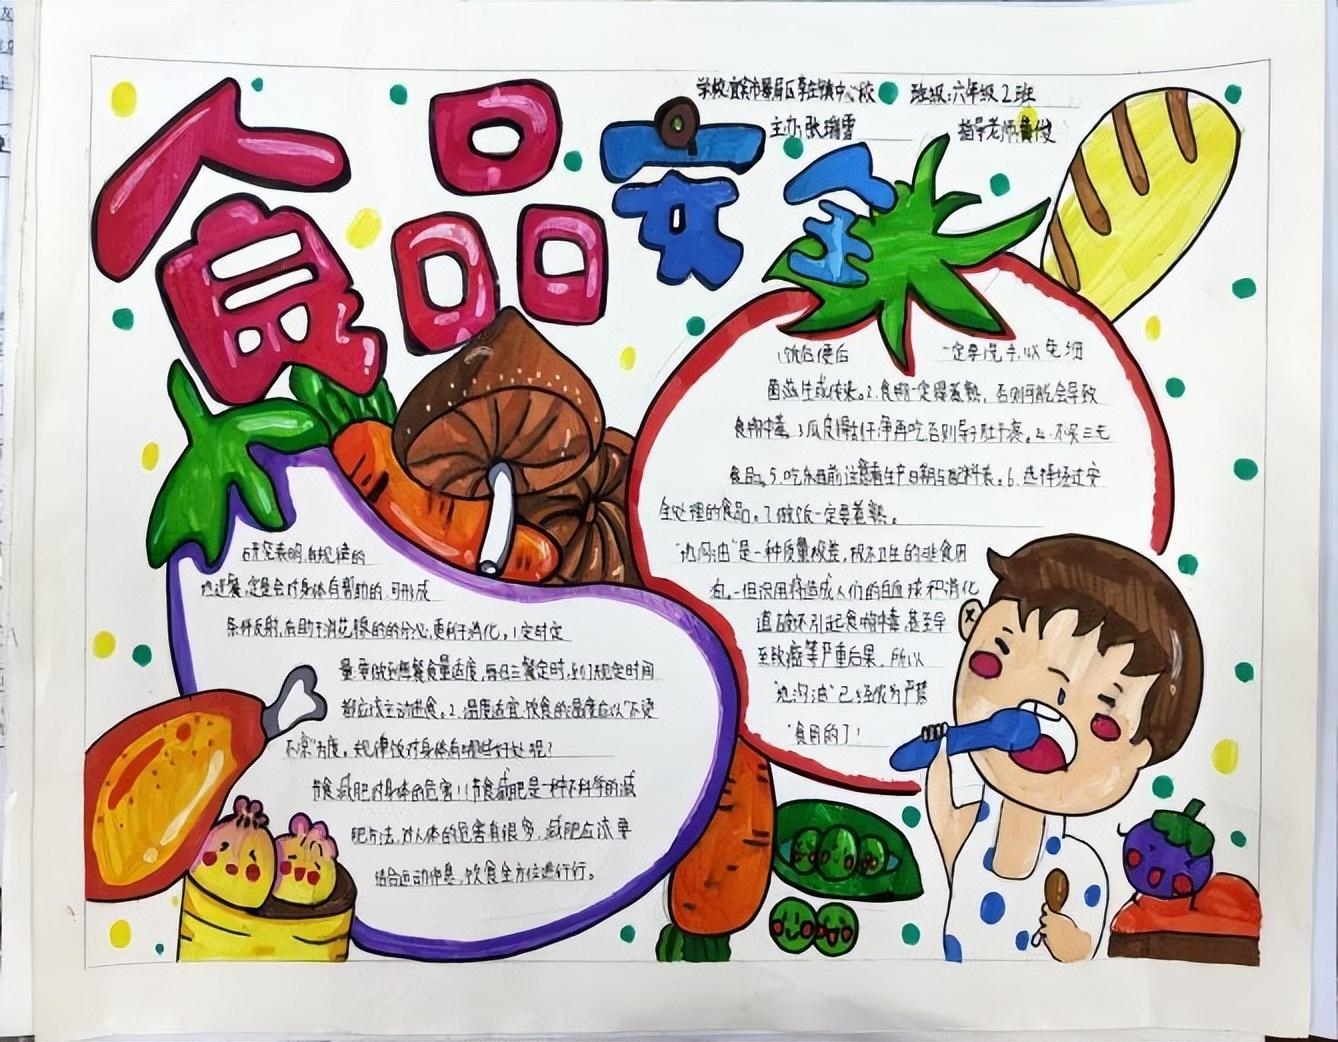 食品安全
学校:宜宾市翠屏区李庄镇中心校 班级:六年级2班
主办:张瑞雪 指导老师:
1饭后便后 一定要洗手,以免细
菌滋生或传来。2.食物一定要煮熟,否则可能会导致
食物中毒。3瓜皮得执行净再吃否则导致肚子疼。4.不买三无
食品。5.吃东西前注意看生产日期与配料表。6.选择经过安
全处理的食品。7做饭一定要煮熟。
"地沟油"是一种质量极差,极不卫生的非食用
右,一但识用将造成人们的白血球和消化
道破坏引起食物中毒,甚至早
至致癌等严重后果。所以
"地沟油"已经成为严禁
"食用的了!
研究表明,有规律的
地进餐,定是会对身体有帮助的,可形成
条件反射,有助于消化腺的的分心,更利于消化。1定时定
量:要做到每餐食量适度,每日三餐定时,上们规定时间
都应该主动进食。2.温度适宜,饮食的温度应以"不烫
不凉"为度。规律饮对身体有哪些好处呢?
节食减肥对身体的危害!1节食减肥是一种不科学的减
肥方法,对人体的危害有很多,减肥应该要
结合运动休息,饮食全方位进行行。